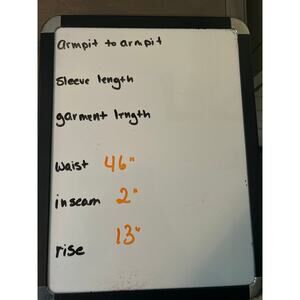 armpit to armpit
sleeve length
garment length
waist 46"
inseam 2"
rise 13"